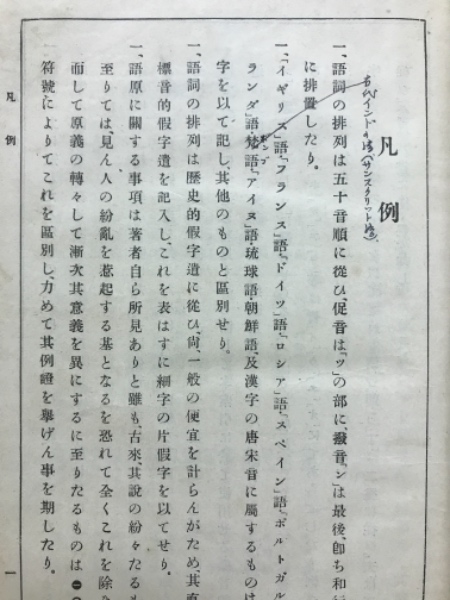 凡例
古代インドの語(サンスクリット語)
一、語詞の排列は五十音順に從ひ、促音は「ツ」の部に、撥音「ン」は最後、卽ち和
に排置したり。
一、「イギリス」語・「フランス」語・「ドイツ」語・「ロシア」語・「スペイン」語・「ポルトガル
ランダ」語・梵語・「アイヌ」語・琉球語・朝鮮語、及漢字の唐宋音に屬するものは
ボンゴ
字を以て記し、其他のものと區別せり。
一、語詞の排列は歷史的假字遣に從ひ、尙、一般の便宜を計らんがため、其直
標音的假字遣を記入し、これを表はすに細字の片假字を以てせり。
一、語原に關する事項は著者自ら所見ありと雖も、古來、其說の紛々たるも
至りては、見ん人の紛亂を惹起する基となるを恐れて全くこれを除
而して原義の轉々して漸次其意義を異にするに至りたるものは㊀
符號によりてこれを區別し、力めて其例證を擧げん事を期したり。
凡例
一